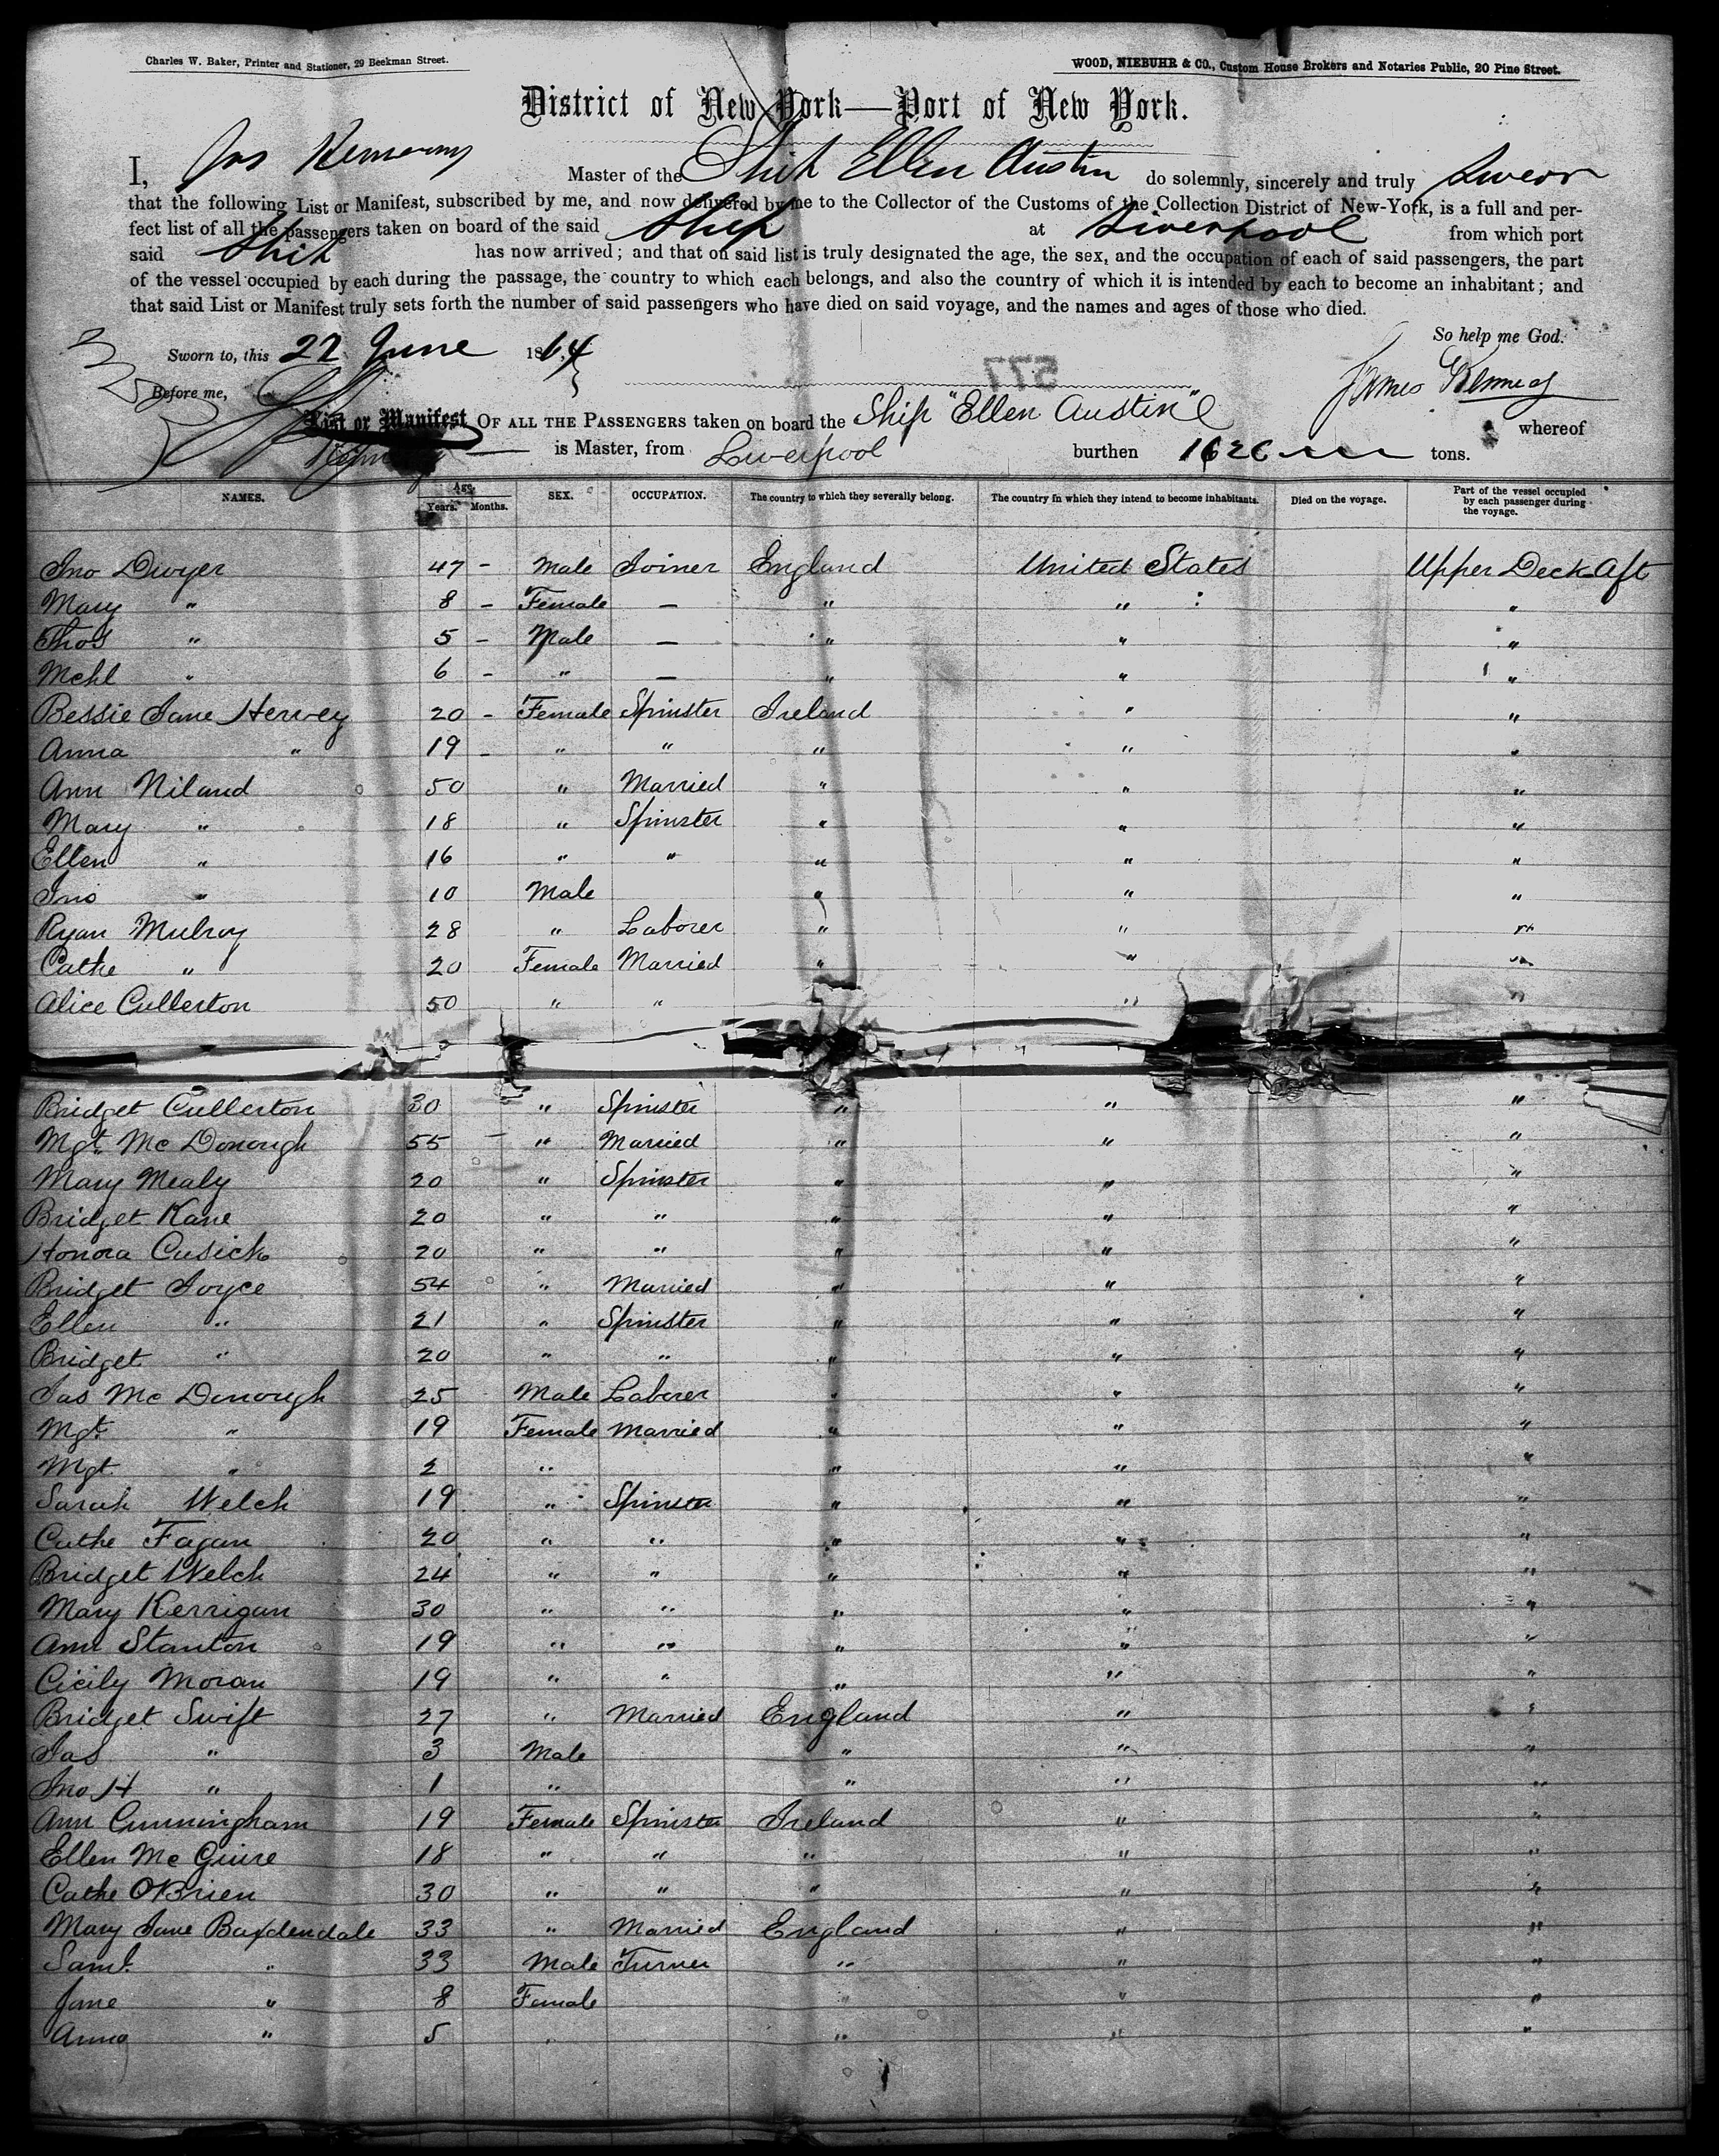 Charles W. Baker, Printer and Stationer, 29 Beekman Street.
WOOD, NIEBUHR & CO., Custom House Brokers and Notaries Public, 20 Pine Street.
District of New York—Port of New York.
I, Jas Kennedy Master of the Ship Ellen Austin do solemnly, sincerely and truly Swear
that the following List or Manifest, subscribed by me, and now delivered by me to the Collector of the Customs of the Collection District of New-York, is a full and per-
fect list of all the passengers taken on board of the said Ship at Liverpool from which port
said Ship has now arrived; and that on said list is truly designated the age, the sex, and the occupation of each of said passengers, the part
of the vessel occupied by each during the passage, the country to which each belongs, and also the country of which it is intended by each to become an inhabitant; and
that said List or Manifest truly sets forth the number of said passengers who have died on said voyage, and the names and ages of those who died.
So help me God.
Sworn to, this 22 June 1864
577
Before me, James Kennedy
List or Manifest OF ALL THE PASSENGERS taken on board the Ship "Ellen Austin" whereof
is Master, from Liverpool burthen 1626 tons.
NAMES. Age. Years. Months. SEX. OCCUPATION. The country to which they severally belong. The country in which they intend to become inhabitants. Died on the voyage. Part of the vessel occupied by each passenger during the voyage.
Jno Dwyer 47 - Male Joiner England United States Upper Deck Aft
Mary " 8 - Female — " " "
Thos " 5 - Male — " " "
Mchl " 6 - " — " " "
Bessie Jane Hervey 20 - Female Spinster Ireland " "
Anna " 19 - " " " " "
Ann Niland 50 " Married " " "
Mary " 18 " Spinster " " "
Ellen " 16 " " " " "
Jno " 10 Male " " "
Ryan Mulroy 28 " Laborer " " "
Cathe " 20 Female Married " " "
Alice Cullerton 50 " " " "
Bridget Cullerton 30 " Spinster " " "
Mgt. Mc Donough 55 " Married " " "
Mary Mealy 20 " Spinster " " "
Bridget Kane 20 " " " " "
Honora Cusick 20 " " " " "
Bridget Joyce 54 " Married " " "
Ellen " 21 " Spinster " " "
Bridget " 20 " " " " "
Jas Mc Donough 25 Male Laborer " " "
Mgt. " 19 Female Married " " "
Mgt. " 2 " " " "
Sarah Welch 19 " Spinster " " "
Cathe Fagan 20 " " " " "
Bridget Welch 24 " " " " "
Mary Kerrigan 30 " " " " "
Ann Stanton 19 " " " " "
Cicily Moran 19 " " " " "
Bridget Swift 27 " Married England " "
Jas " 3 Male " " "
Jno H " 1 " " " "
Ann Cunningham 19 Female Spinster Ireland " "
Ellen Mc Guire 18 " " " " "
Cathe OBrien 30 " " " " "
Mary Jane Baxdendale 33 " Married England " "
Saml. " 33 Male Turner " " "
Jane " 8 Female " " "
Anna " 5 " " " "